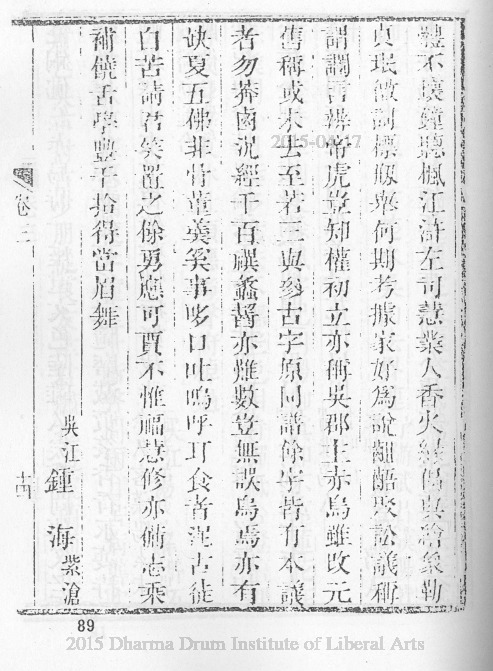 體不壞鐘聽楓江滸左司慧業人香火緣偈與繪象勒
貞珉徵詞標緣舉何期考據家好為說齟齬聚訟議稱
謂謂言辨帝虎豈知權初立亦稱吳郡主赤烏雖改元
舊稱或未去至若三與參古字原同譜餘字皆有本議
者勿莽鹵況經千百禩蠡酱亦難數豈無誤烏焉亦有
缺夏五佛非骨董羹奚事哆口吐嗚呼耳食者泥古徒
自苦請君笑置之餘勇應可賈不惟福慧修亦備志乘
補饒舌學豐干拾得當眉舞
吳江鍾海紫滄
卷三
十四
89
2015-04-17
2015 Dharma Drum Institute of Liberal Arts